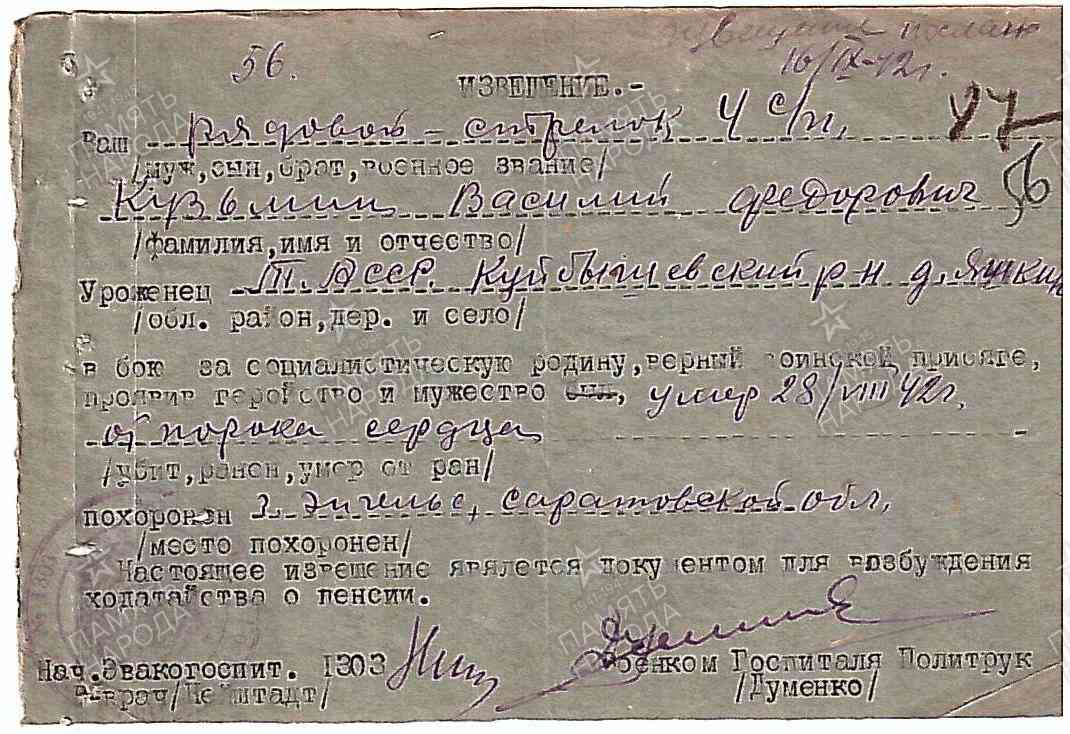 Извещение послано
56. 16/IX-42г.
ИЗВЕЩЕНИЕ.-
Ваш рядовой - стрелок 4 с/п, 47
/муж,сын,брат,военное звание/
Кузьмин Василий Федорович 56
/фамилия,имя и отчество/
Уроженец Т.АССР. Куйбышевский р-н д.Яшкин
/обл. район,дер. и село/
в бою за социалистическую родину,верный воинской присяге,
проявив геройство и мужество был, умер 28/VIII 42г.
от порока сердца
/убит,ранен,умер от ран/
похоронен г. Энгельс, Саратовской обл,
/место похоронен/
Настоящее извещение явялется документом для возбуждения
ходатайства о пенсии.
Нач.Эвакогоспит. 1303 Военком Госпиталя Политрук
/Думенко/
ПАМЯТЬ НАРОДА